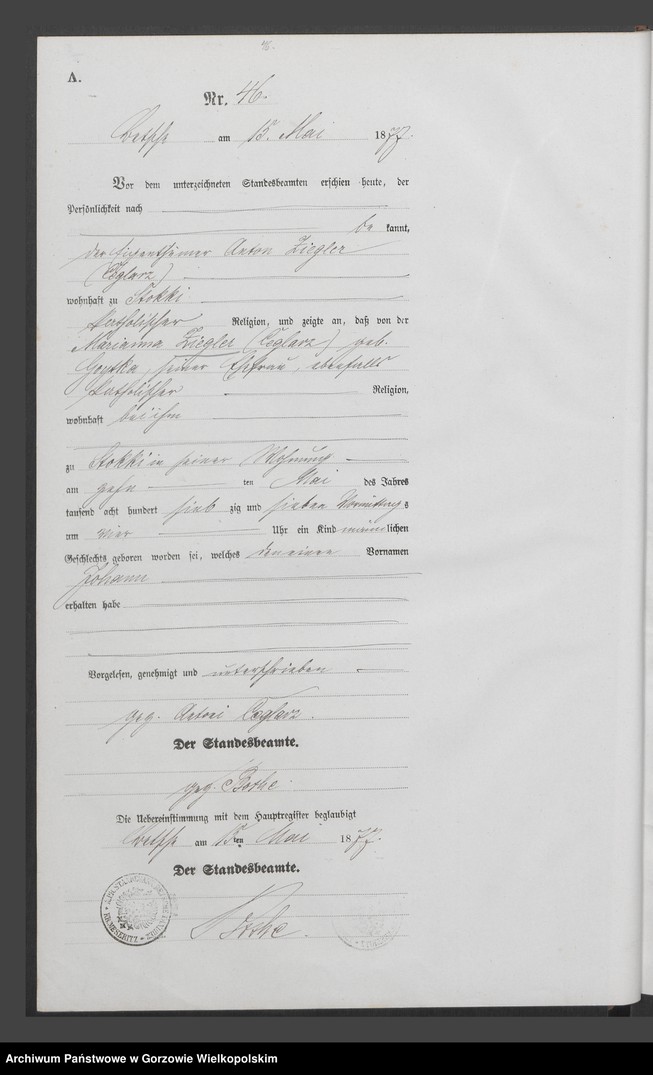 A.
Nr. 46.
Betsche am 15. Mai 1877.
Vor dem unterzeichneten Standesbeamten erschien heute, der
Persönlichkeit nach
be kannt,
der Eigenthümer Anton Ziegler
(Ceglarz)
wohnhaft zu Stokki
katholischer Religion, und zeigte an, daß von der
Marianna Ziegler (Ceglarz) geb.
seiner Ehefrau, ebenfalls
katholischer Religion,
wohnhaft bei ihm
zu Stokki in seiner Wohnung
am zehn ten Mai des Jahres
tausend acht hundert sieb zig und sieben Vormittag s
um vier Uhr ein Kind männ lichen
Geschlechts geboren worden sei, welches den einen Vornamen
Johann
erhalten habe
Vorgelesen, genehmigt und unterschrieben
gez. Antoni Ceglarz.
Der Standesbeamte.
gez.
Die Uebereinstimmung mit dem Hauptregister beglaubigt
Betsche am 15 ten Mai 1877.
Der Standesbeamte.
KR. MESERITZ
Archiwum Państwowe w Gorzowie Wielkopolskim